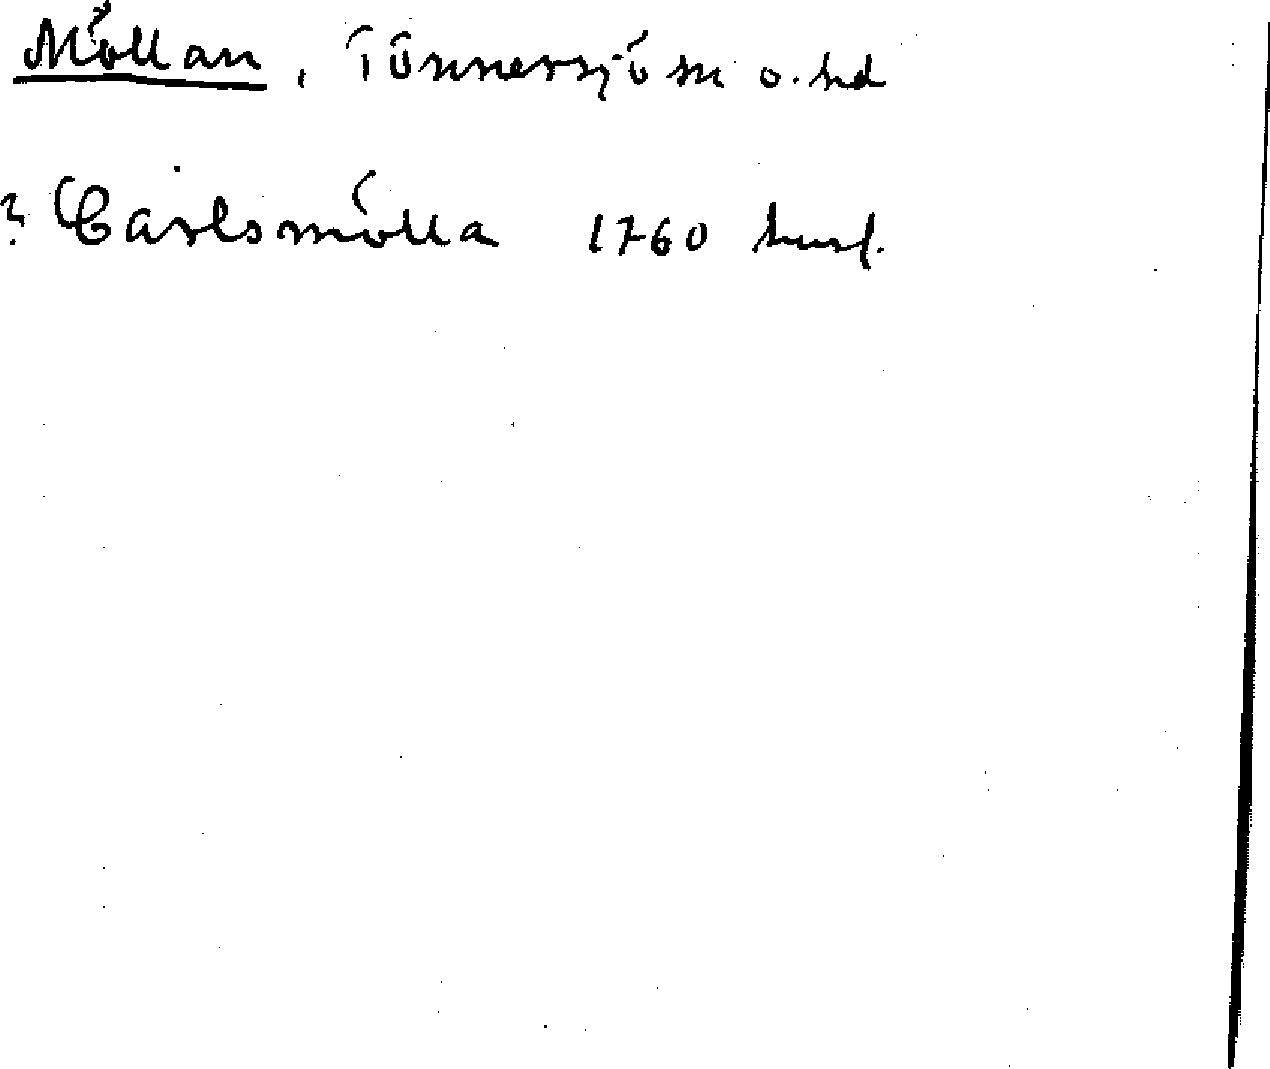 Möllan, Tönnersjö sn o. hd
? Carlsmölla 1760 husf.